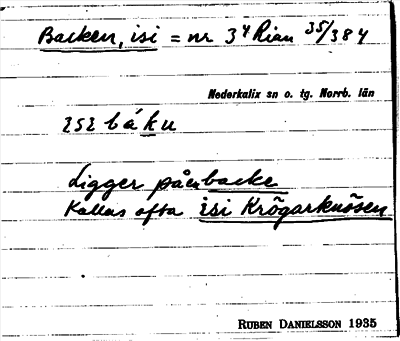 Backen, isi = nr 3⁴ Rian 35/384
Nederkalix sn o. tg. Norrb. län
ɪsɪ báku
Ligger på en backe
Kallas ofta isi Krögarknösen
RUBEN DANIELSSON 1935